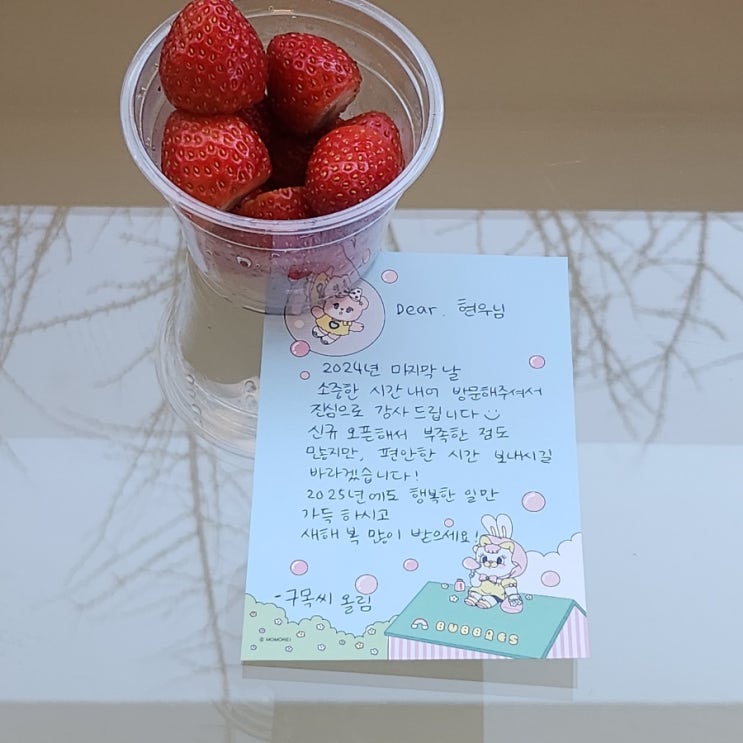 Dear. 현우님
2024년 마지막 날
소중한 시간내어 방문해주셔서
진심으로 감사드립니다
신규 오픈해서 부족한 점도
많지만, 편안한 시간 보내시길
바라겠습니다!
2025년에도 행복한 일만
가득 하시고
새해 복 많이 받으세요!
-구목씨 올림
BUBBLES
© MOMOREI